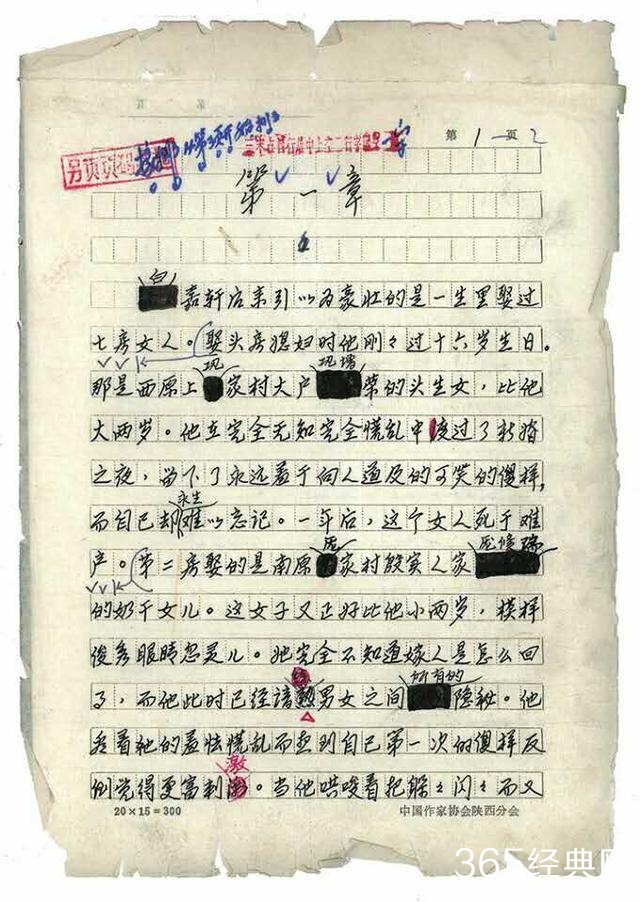 第1页2
第一章
白嘉轩后来引以为豪壮的是一生里娶过
七房女人。娶头房媳妇时他刚々过十六岁生日。
那是西原上巩家村大户巩增荣的头生女，比他
大两岁。他在完全无知完全慌乱中度过了新婚
之夜，留下了永远羞于向人道及的可笑的傻样，
而自己却永生难以忘记。一年后，这个女人死于难
产。第二房娶的是南原庞家村殷实人家庞修瑞
的奶干女儿。这女子又正好比他小两岁，模样
俊秀眼睛忽灵儿。她完全不知道嫁人是怎么回
事，而他此时已经谙熟男女之间所有的隐秘。他
看着她的羞怯慌乱而想到自己第一次的傻样反
倒觉得更富刺激。当他哄唆着把躲々闪々而又
20×15=300
中国作家协会陕西分会
365经典